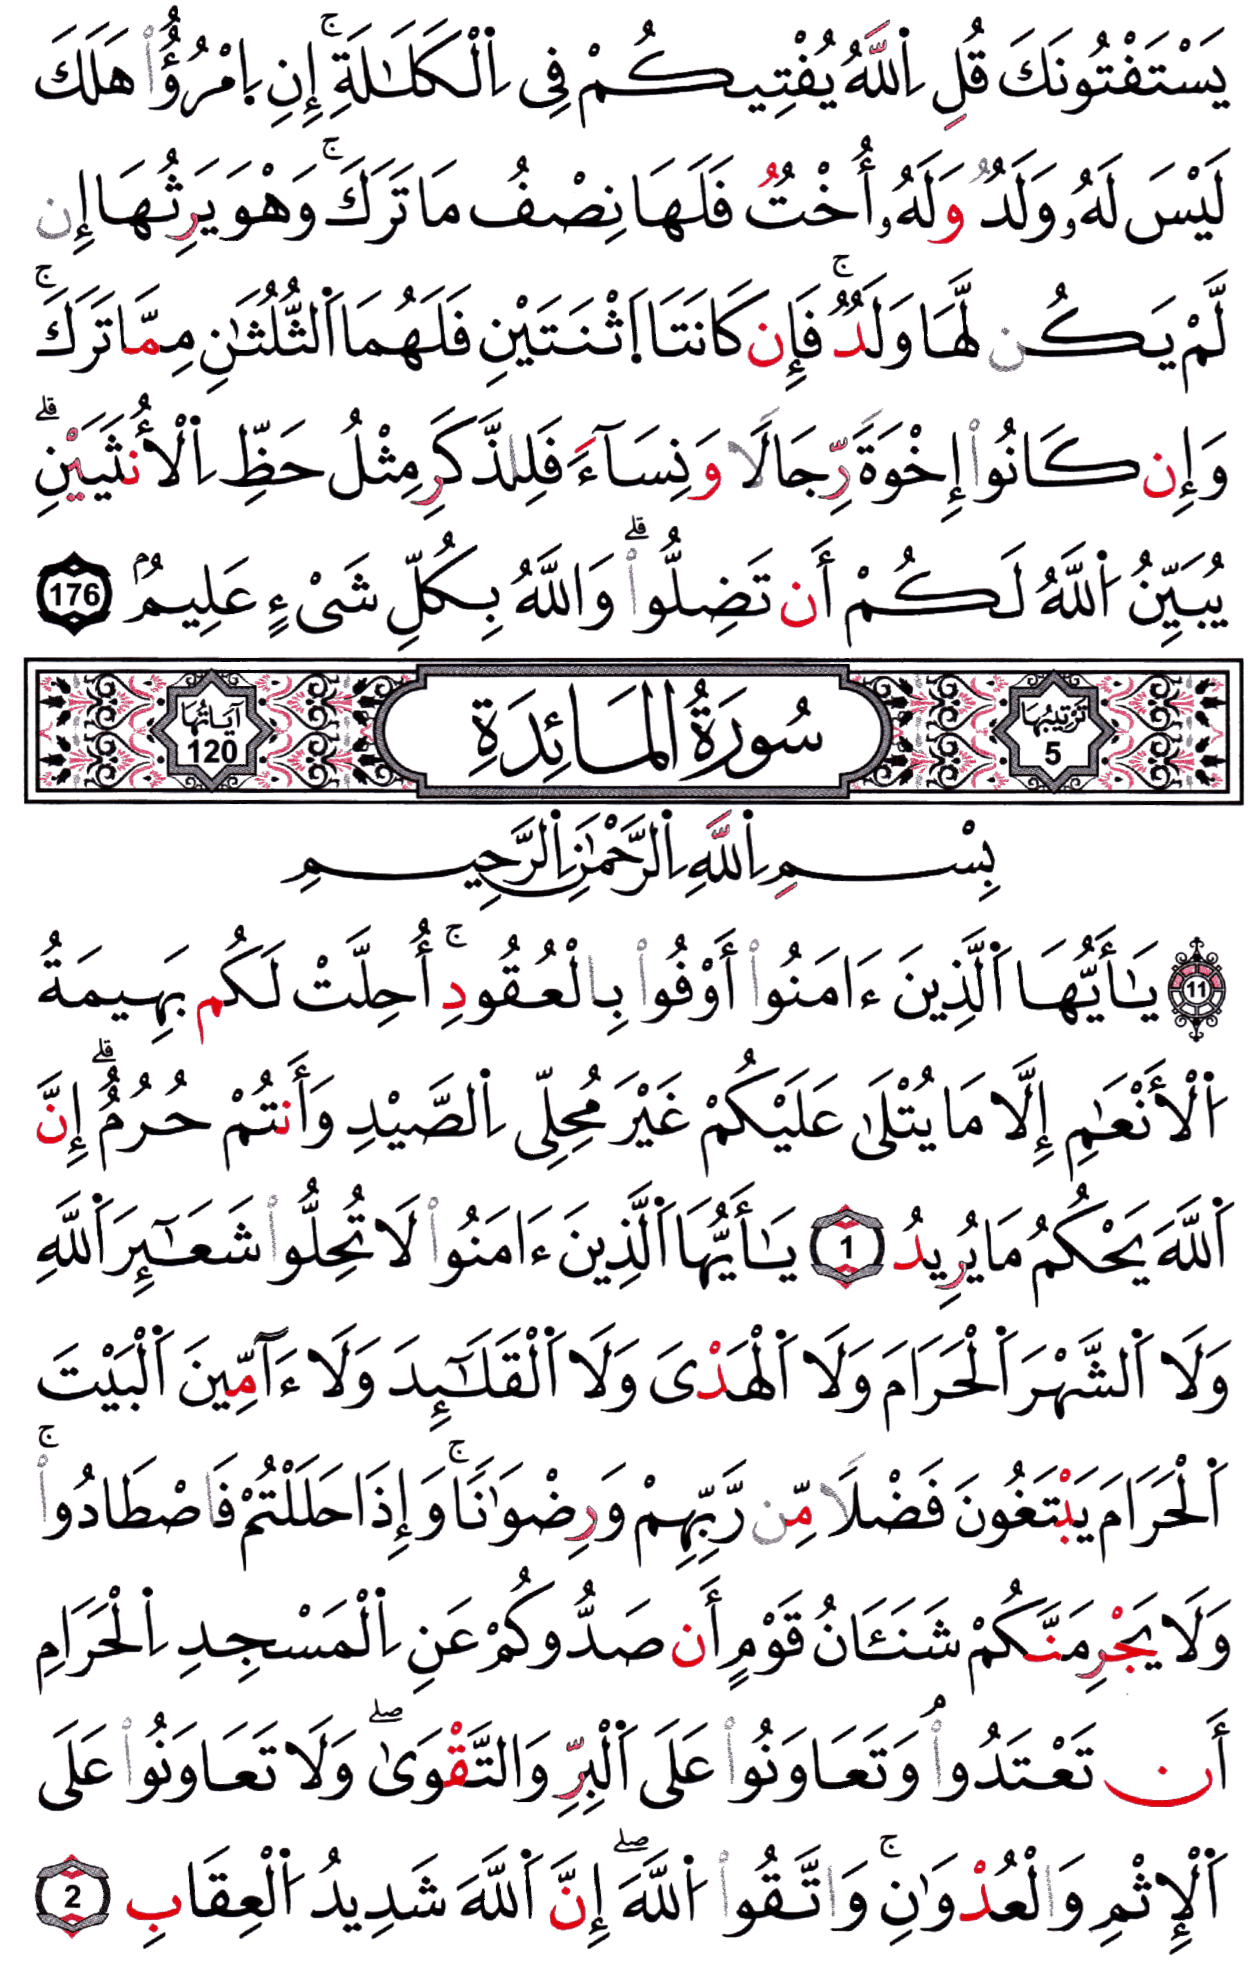 يَسْتَفْتُونَكَ قُلِ اِ۬للَّهُ يُفْتِيكُمْ فِي اِ۬لْكَلَٰلَةِۚ إِنِ اِ۪مْرُؤٌاْ هَلَكَ
لَيْسَ لَهُۥ وَلَدٞ وَلَهُۥ أُخْتٞ فَلَهَا نِصْفُ مَا تَرَكَۚ وَهْوَ يَرِثُهَا إِن
لَّمْ يَكُن لَّهَا وَلَدٞۚ فَإِن كَانَتَا اَ۪ثْنَتَيْنِ فَلَهُمَا اَ۬لثُّلُثَٰنِ مِمَّا تَرَكَۚ
وَإِن كَانُواْ إِخْوَةٗ رِّجَالٗا وَنِسَآءٗ فَلِلذَّكَرِ مِثْلُ حَظِّ اِ۬لْأُنثَيَيْنِۗ
يُبَيِّنُ اُ۬للَّهُ لَكُمْ أَن تَضِلُّواْۗ وَاللَّهُ بِكُلِّ شَيْءٍ عَلِيمُۢ 176
تَرْتِيبُهَا 5 سُورَةُ المَائِدَةِ آيَاتُهَا 120
بِسْمِ اِ۬للَّهِ اِ۬لرَّحْمَٰنِ اِ۬لرَّحِيمِ
11 يَٰأَيُّهَا اَ۬لَّذِينَ ءَامَنُواْ أَوْفُواْ بِالْعُقُودِۚ أُحِلَّتْ لَكُم بَهِيمَةُ
اُ۬لْأَنْعَٰمِ إِلَّا مَا يُتْلَىٰ عَلَيْكُمْ غَيْرَ مُحِلِّي اِ۬لصَّيْدِ وَأَنتُمْ حُرُمٌۗ إِنَّ
اَ۬للَّهَ يَحْكُمُ مَا يُرِيدُ 1 يَٰأَيُّهَا اَ۬لَّذِينَ ءَامَنُواْ لَا تُحِلُّواْ شَعَٰٓئِرَ اَ۬للَّهِ
وَلَا اَ۬لشَّهْرَ اَ۬لْحَرَامَ وَلَا اَ۬لْهَدْيَ وَلَا اَ۬لْقَلَٰٓئِدَ وَلَا ءَآمِّينَ اَ۬لْبَيْتَ
اَ۬لْحَرَامَ يَبْتَغُونَ فَضْلٗا مِّن رَّبِّهِمْ وَرِضْوَٰنٗاۚ وَإِذَا حَلَلْتُمْ فَاصْطَادُواْۚ
وَلَا يَجْرِمَنَّكُمْ شَنَـَٔانُ قَوْمٍ أَن صَدُّوكُمْ عَنِ اِ۬لْمَسْجِدِ اِ۬لْحَرَامِ
أَن تَعْتَدُواْۘ وَتَعَاوَنُواْ عَلَى اَ۬لْبِرِّ وَالتَّقْوَىٰۖ وَلَا تَعَاوَنُواْ عَلَى
اَ۬لْإِثْمِ وَالْعُدْوَٰنِۚ وَاتَّقُواْ اُ۬للَّهَۖ إِنَّ اَ۬للَّهَ شَدِيدُ اُ۬لْعِقَابِ 2